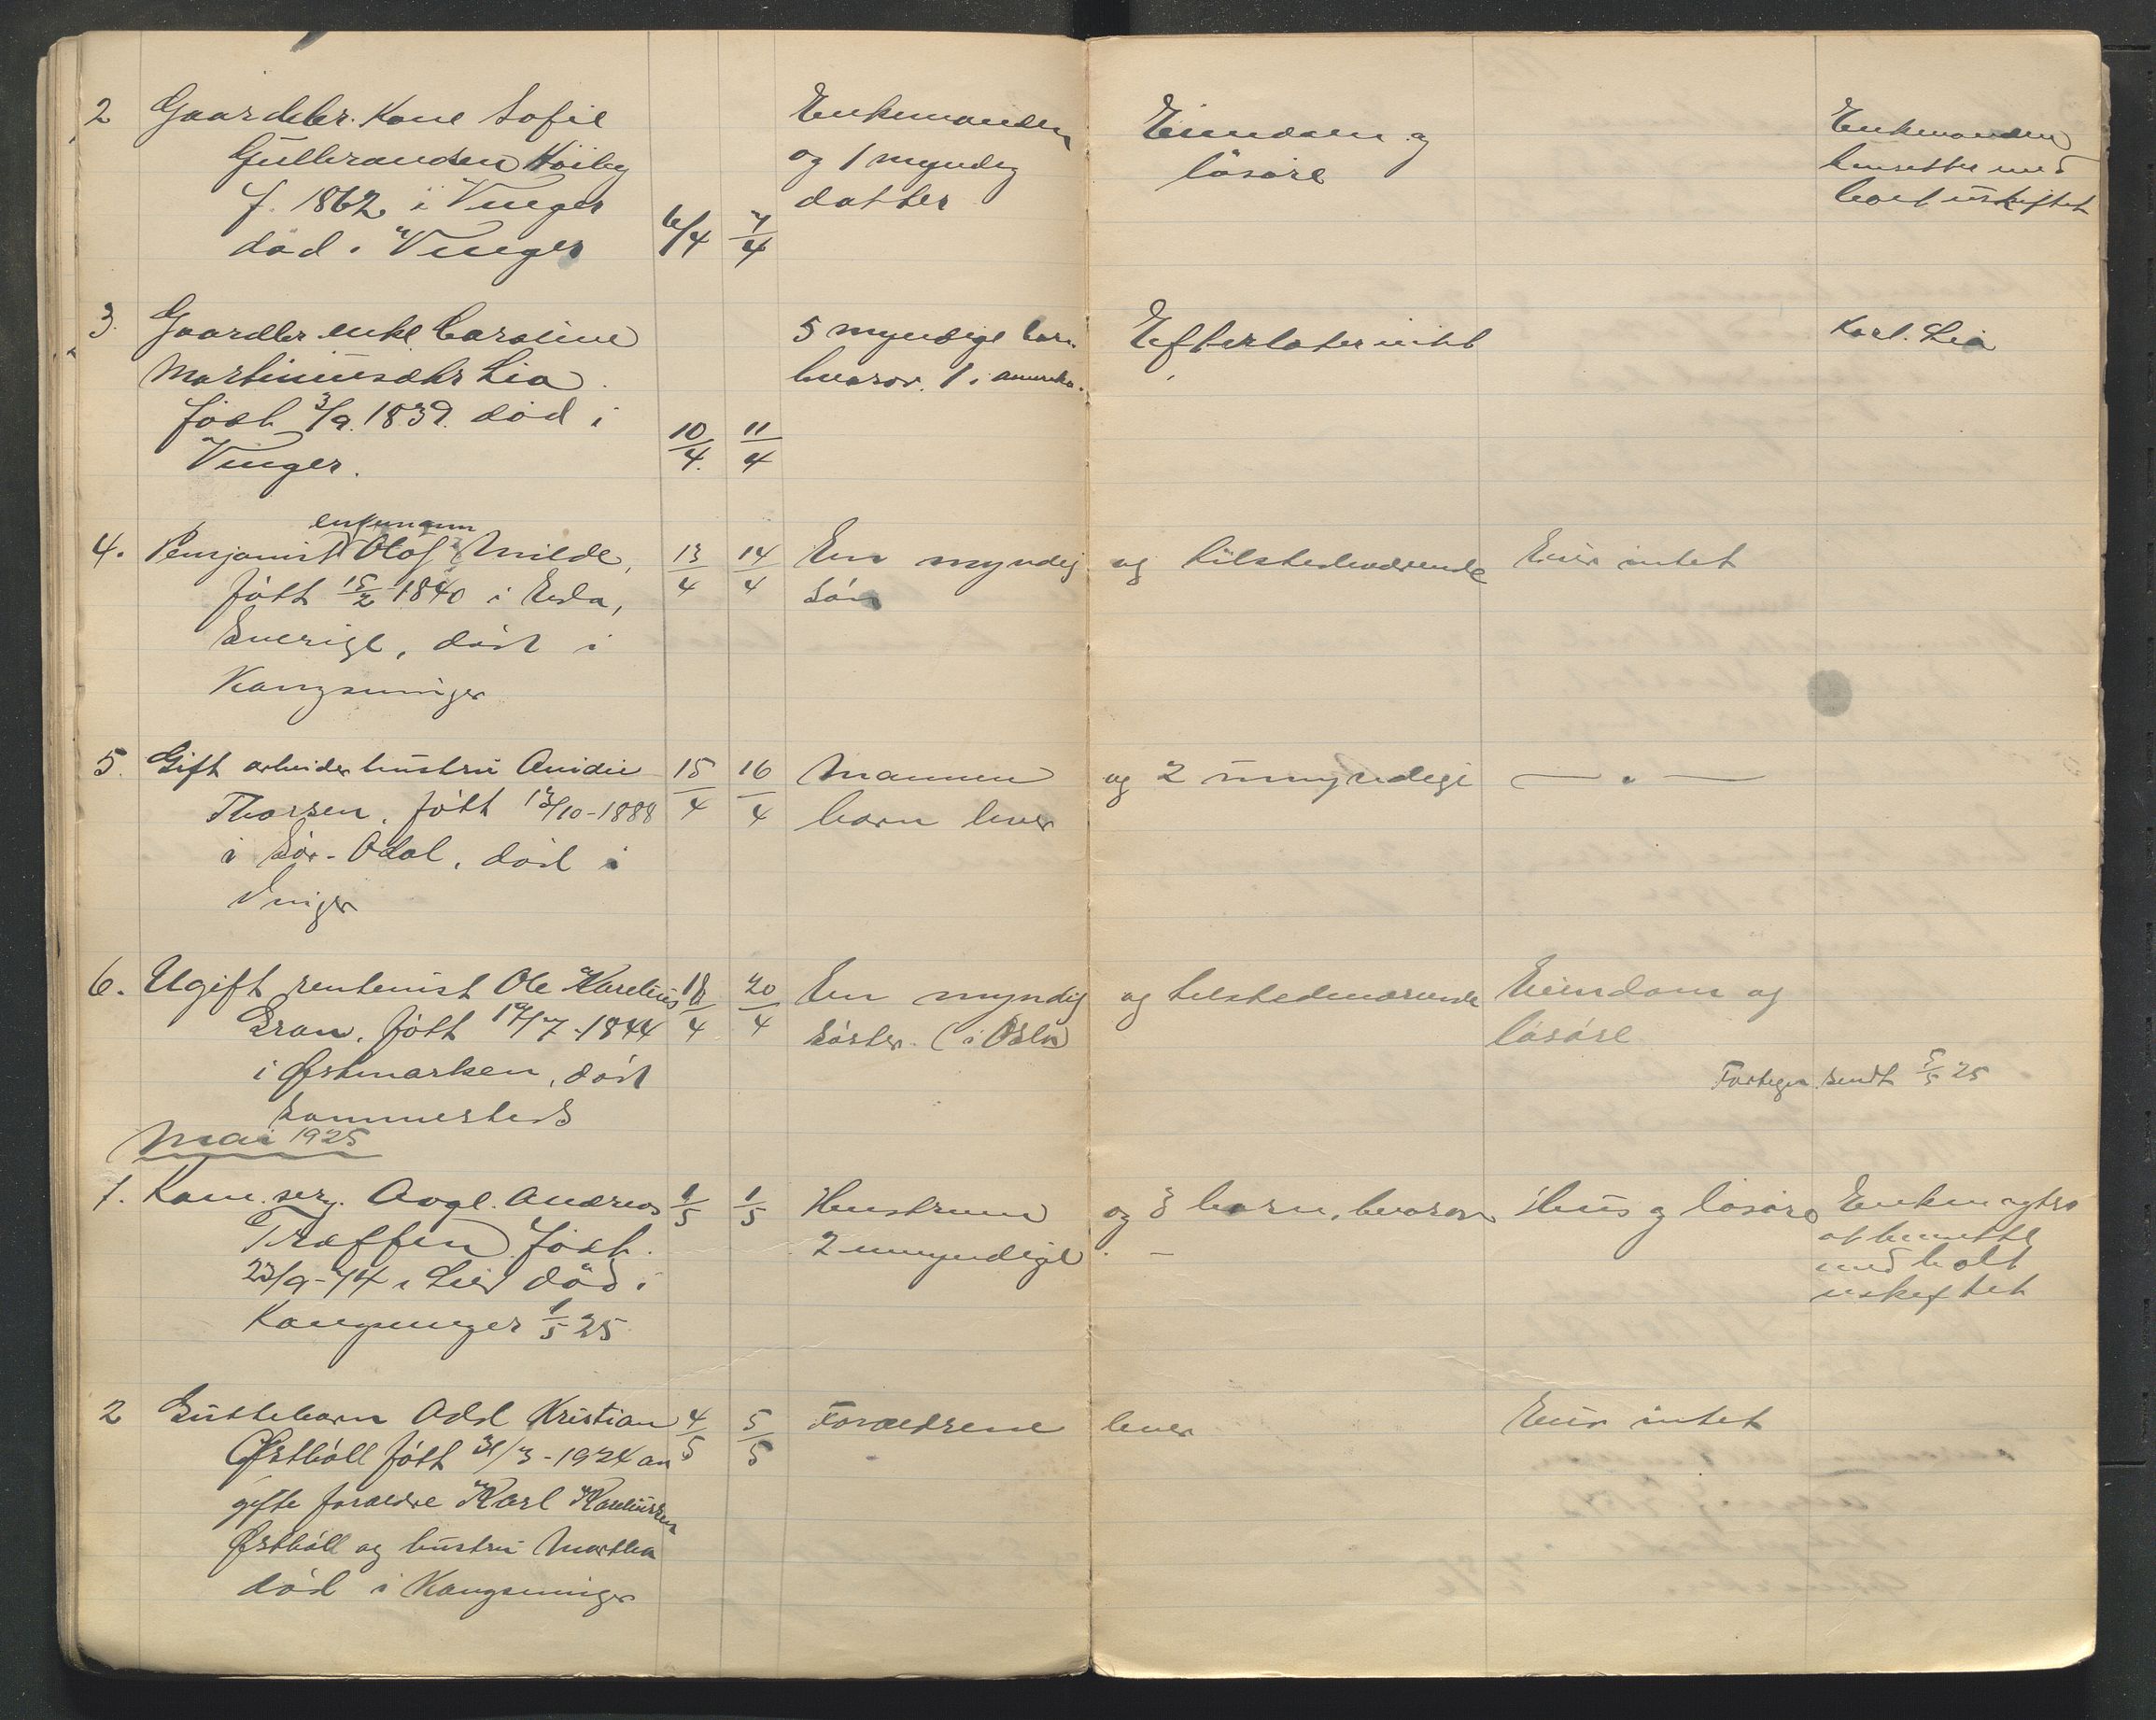 2 Gaardbr. Kone Sofie
Gulbrandsen Høiby
f. 1862 i Vinger
död i Vinger
6/4 7/4
Enkemanden
og 1 myndig
datter
Eiendom og
lösöre
Enkemanden
hensitter med
boet uskiftet
3. Gaardbr enke Caroline
Martiniusdtr Lia.
födt 3/9. 1839. död i
Vinger.
10/4. 11/4
5 myndige barn
hvorav. 1 i amerika.
Efterlater intet
Karl. Lia
enkemann
4. Pensjonist Olof Milde,
født 15/2 1840 i Eda,
Sverige, død i
Kongsvinger
13/4 14/4
En myndig og tilstedeværende
søn
Eier intet
5. Gift arbeiderhustru
Thorsen, født 13/10-1888
i Sør-Odal, død i
Vinger
15/4 16/4
Mannen og 2 umyndige
barn lever
— " —
6. Ugift rentenist Ole Karelius
Gran, født 19/7-1844
i Østmarken, død
sammesteds
18/4 20/4
En myndig og tilstedeværende
søster (i Oslo)
Eiendom og
løsøre
Fortegn. sendt 5/5 25
Mai 1925
1. Kom. serg. Avgl. Andreas
Træffen födt.
23/9-74 i Lier död i
Kongsvinger 1/5 25
1/5 1/5
Hustruen og 3 barn, hvorav
2 umyndige. —
Hus og lösöre
Enken agter
at hensitte
med boet
uskiftet
2 Guttebarn Odd Kristian
Østbøll født 31/3-1924 av
gifte foreldre Karl Kareliussen
Østbøll og hustru Martha
død i Kongsvinger
4/5 5/5
Foreldrene lever
Eier intet